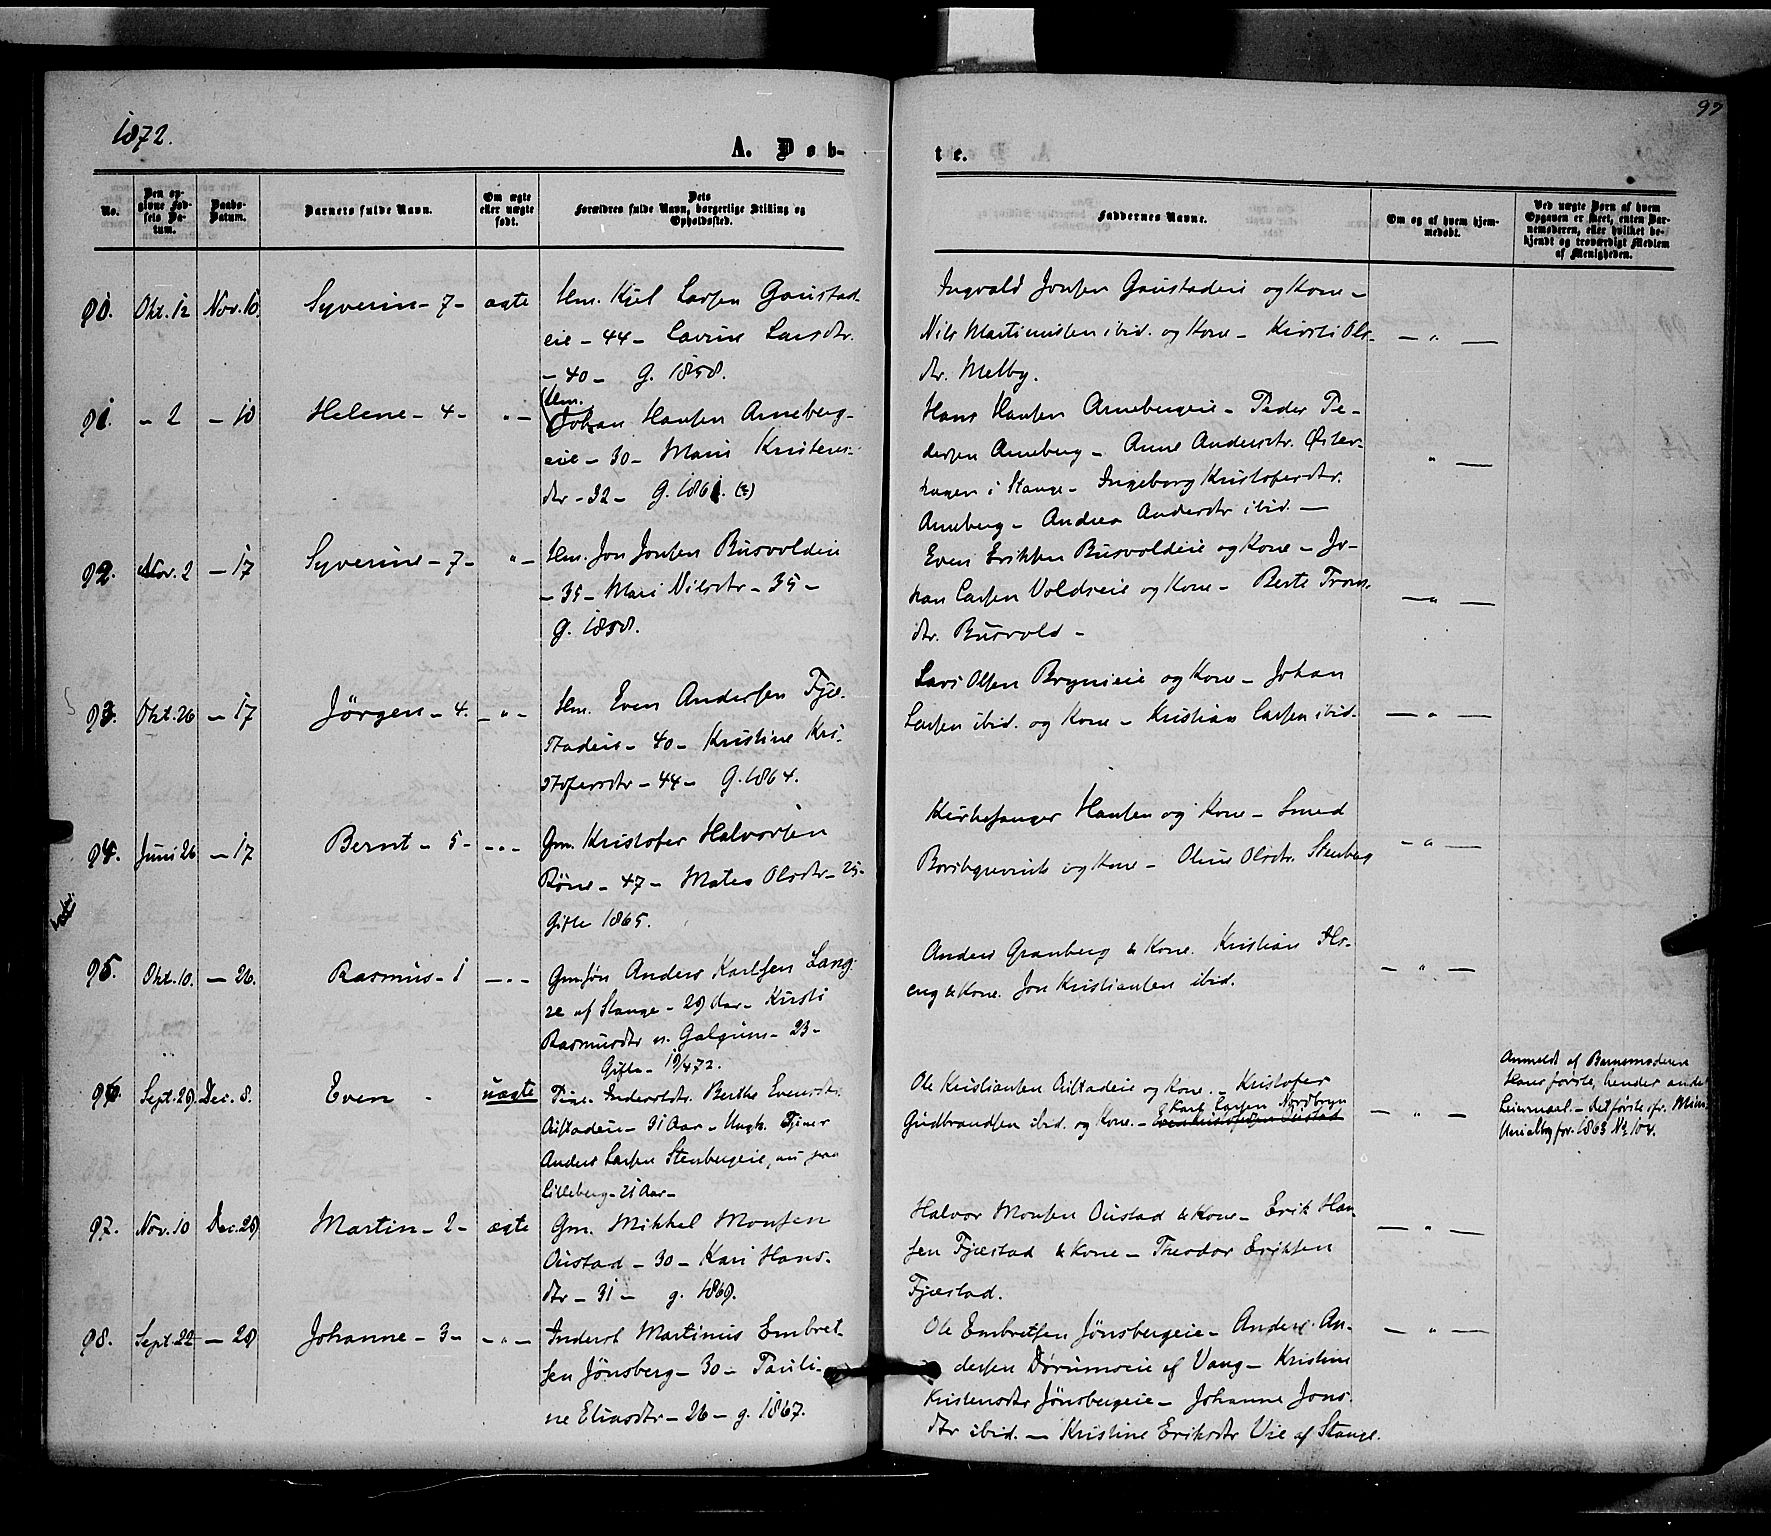 1872.
97
A. Døb-
te.
No.
Den op-
givne Fød-
sels Da-
tum.
Daabs-
Datum.
Barnets fulde Navn.
Om ægte
eller uægte
født.
Dets
Forældres fulde Navn, borgerlige Stilling og
Opholdssted.
Faddernes Navne.
Om og af hvem hjem-
medøbt.
Ved uægte Børn af hvem
Opgaven er skeet, enten Bar-
nemoderen, eller hvilket be-
kjendt og troværdigt Medlem
af Menigheden.
90. Okt. 12 Nov. 10. Syverin - 7 - ægte Hm. Kjel Larsen Gaustad-
eie - 44 - Lavine Larsdtr.
- 40 - G. 1858.
Ingvald Jonsen Gaustadeie og Kone -
Nils Martinussen ibid. og Kone - Kirsti Ols-
dtr. Melby. - " -
91. - 2 - 10 Helene - 4 - " - Hm.
Johan Hansen Arneberg-
eie - 30 - Mari Kristens-
dtr - 32 - G. 1861. (2)
Hans Hansen Arnebergeie - Peder Pe-
dersen Arneberg - Anne Andersdtr. Øster-
hagen i Stange - Ingeborg Kristofersdtr.
Arneberg - Andrea Andersdtr ibid. - " -
92. Nov. 2 - 17 Syverine - 7 - " - Hm. Jon Jonsen Busvoldeie
- 35 - Mari Nilsdtr - 35 -
G. 1858.
Even Eriksen Busvoldeie og Kone - Jo-
han Larsen Voldseie og Kone - Berte Trons-
dtr. Busvold - - " -
93. Okt. 26 - 17 Jörgen - 4. - " - Hm. Even Andersen Fjæ-
stadeie - 40 - Kristine Kri-
stofersdtr - 44 - G. 1864.
Lars Olsen Brynieie og Kone - Johan
Larsen ibid. og Kone - Kristian Larsen ibid. - " -
94. Juni 26 - 17 Bernt - 5 - - " - Gm. Kristofer Halvorsen
Röne - 47 - Mathea Olsdtr - 25 -
Gifte 1865.
Kirkesanger Hansen og Kone - Smed
og Kone - Oline Olsdtr. Stenberg - " -
95. Okt. 10. - 26. Rasmus - 1 - " - Gmsøn Anders Karlsen Lang-
ze af Stange - 29 Aar - Kirsti
Rasmusdtr n. Galgum - 23 -
Gifte - 19/4 72.
Anders Granberg & Kone. Kristian
eng & Kone. Jon Kristiansen ibid. - " -
96. Sept. 29 Dec. 8. Even - uægte Pige - Inderstdtr. Berthe Evensdtr.
- 31 Aar - Ungk. Tjener
Anders Larsen Stenbergeie, nu paa
Lilleberg - 21 Aar -
Ole Kristiansen og Kone. - Kristofer
Karl Larsen Nordbryn
Gudbrandsen ibid. og Kone. - - " -
Anmeldt af Barnemoderen
Hans første, hendes andet
Leiermaal. - Det første ofr. Min.
for. 1863 No 104.
97. Nov. 10 Dec. 29 Martin - 2 - ægte Gm. Mikkel Monsen
Oustad - 30 - Kari Hans-
dtr - 31 - g. 1869.
Halvor Monsen Oustad & Kone - Erik Han-
sen Fjæstad & Kone - Theodor Eriksen
Fjæstad. - " -
98. Sept. 22 - 29 Johanne - 3 - - " - Inderst Martinus Embret-
sen Jönsberg - 30 - Pauli-
ne Eliasdtr - 26 - g. 1867.
Ole Embretsen Jönsbergeie - Anders An-
dersen Dørumseie af Vang - Kristine
Kristensdtr Jönsbergeie - Johanne Jons-
dtr ibid. - Kristine Eriksdtr Vie af Stange. - " -